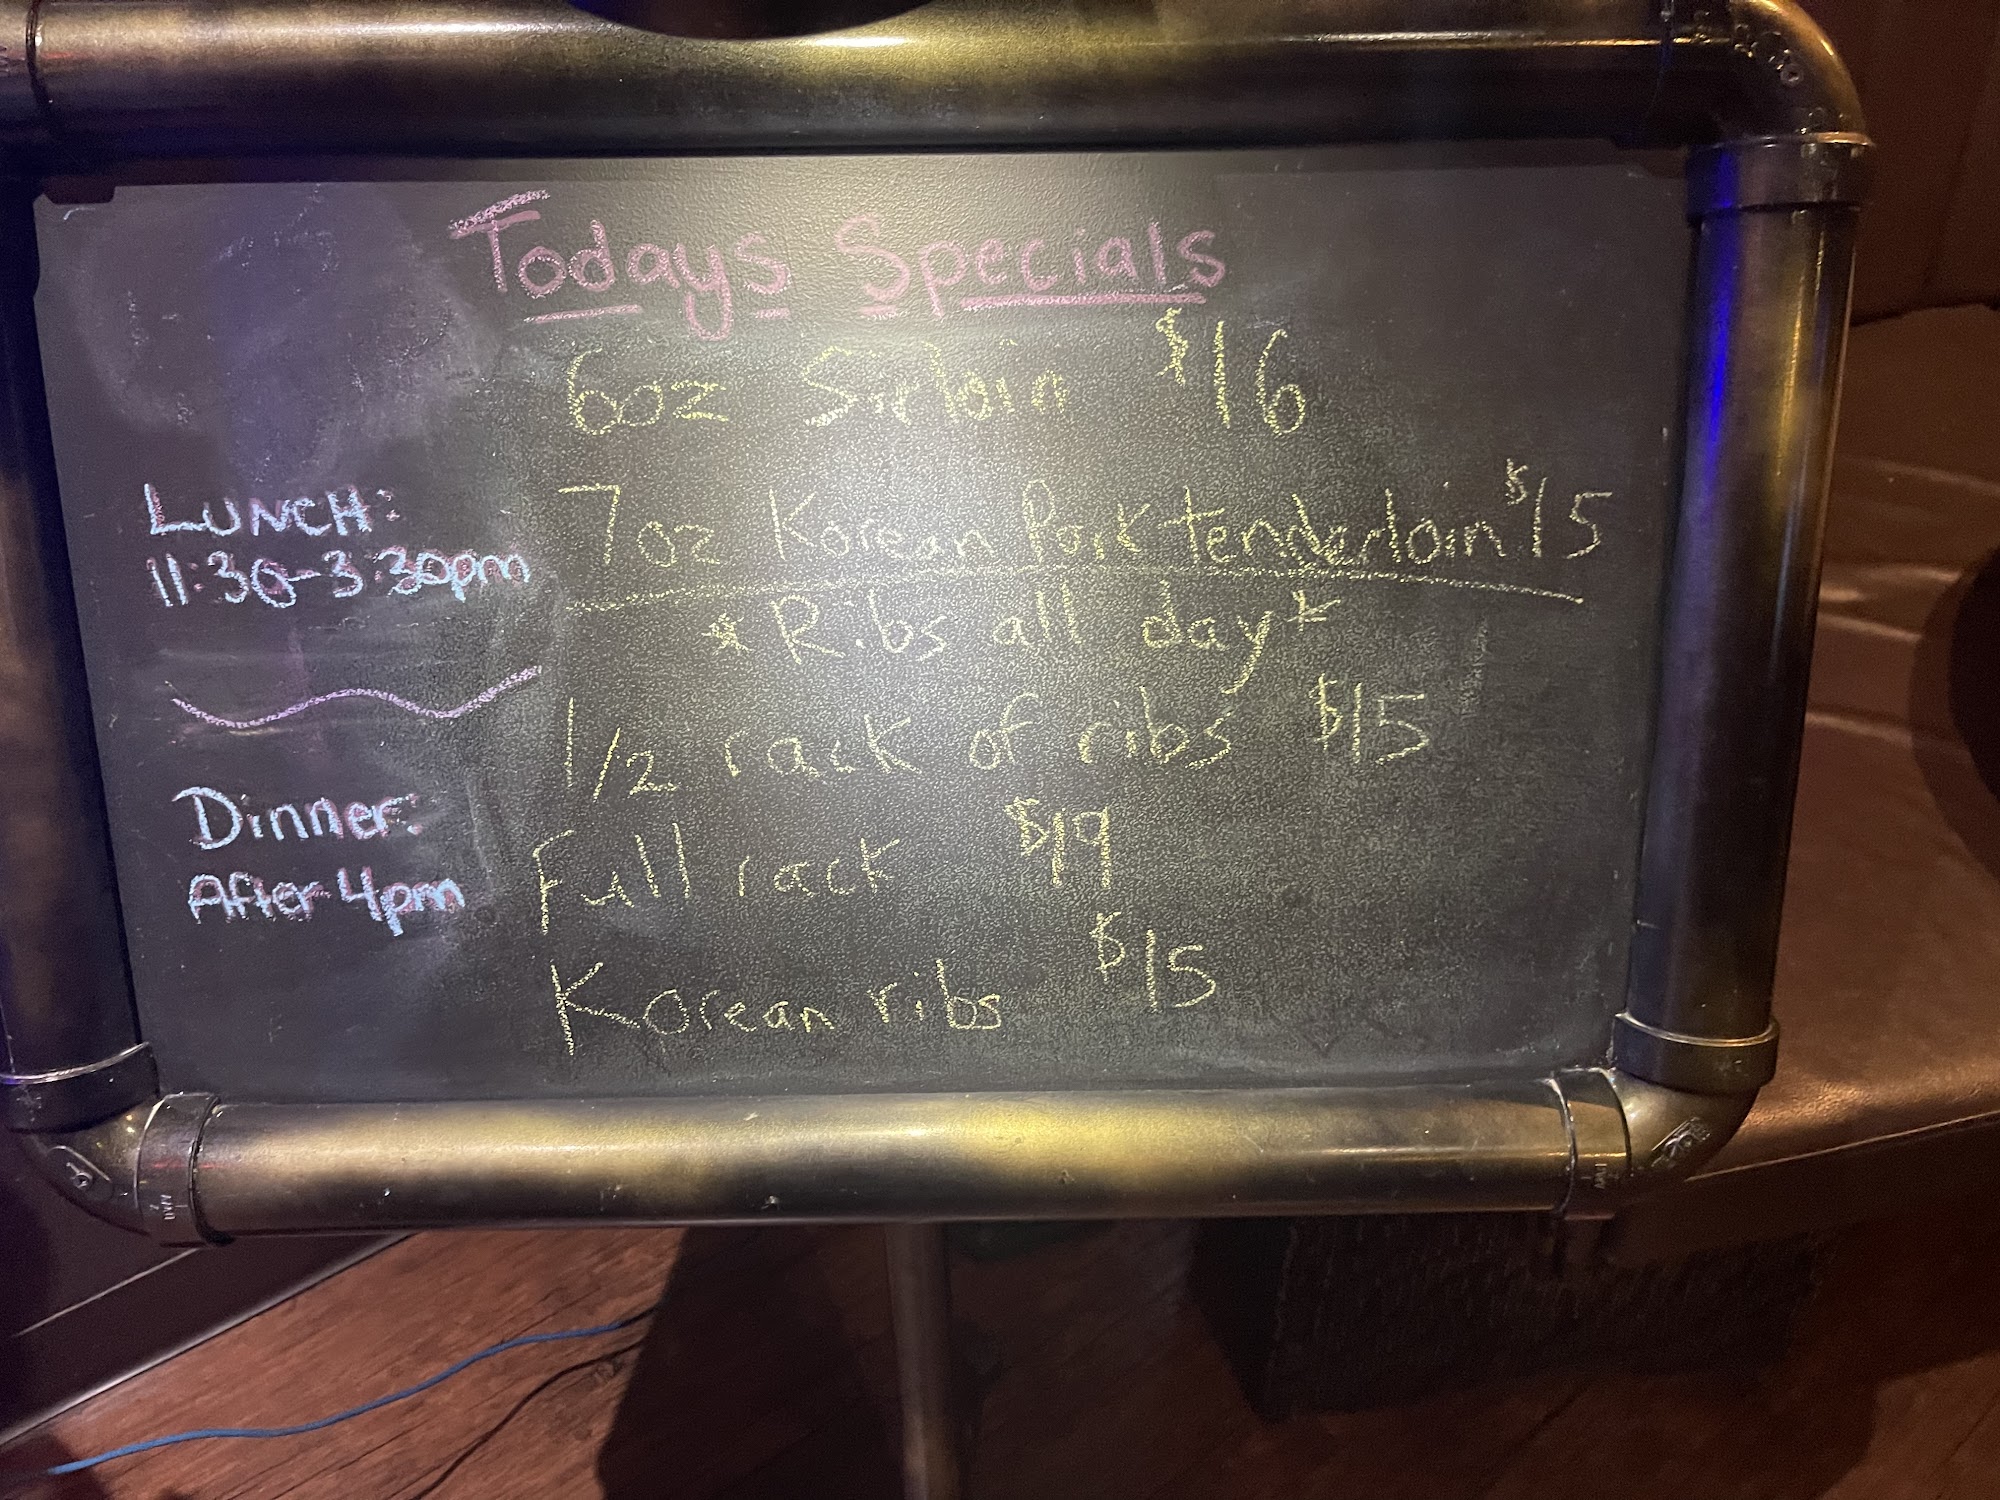 Todays Specials
6oz Sirloin $16
7oz Korean Pork tenderloin $15
*Ribs all day*
1/2 rack of ribs $15
Full rack $19
Korean ribs $15
LUNCH:
11:30-3:30pm
Dinner:
After 4pm